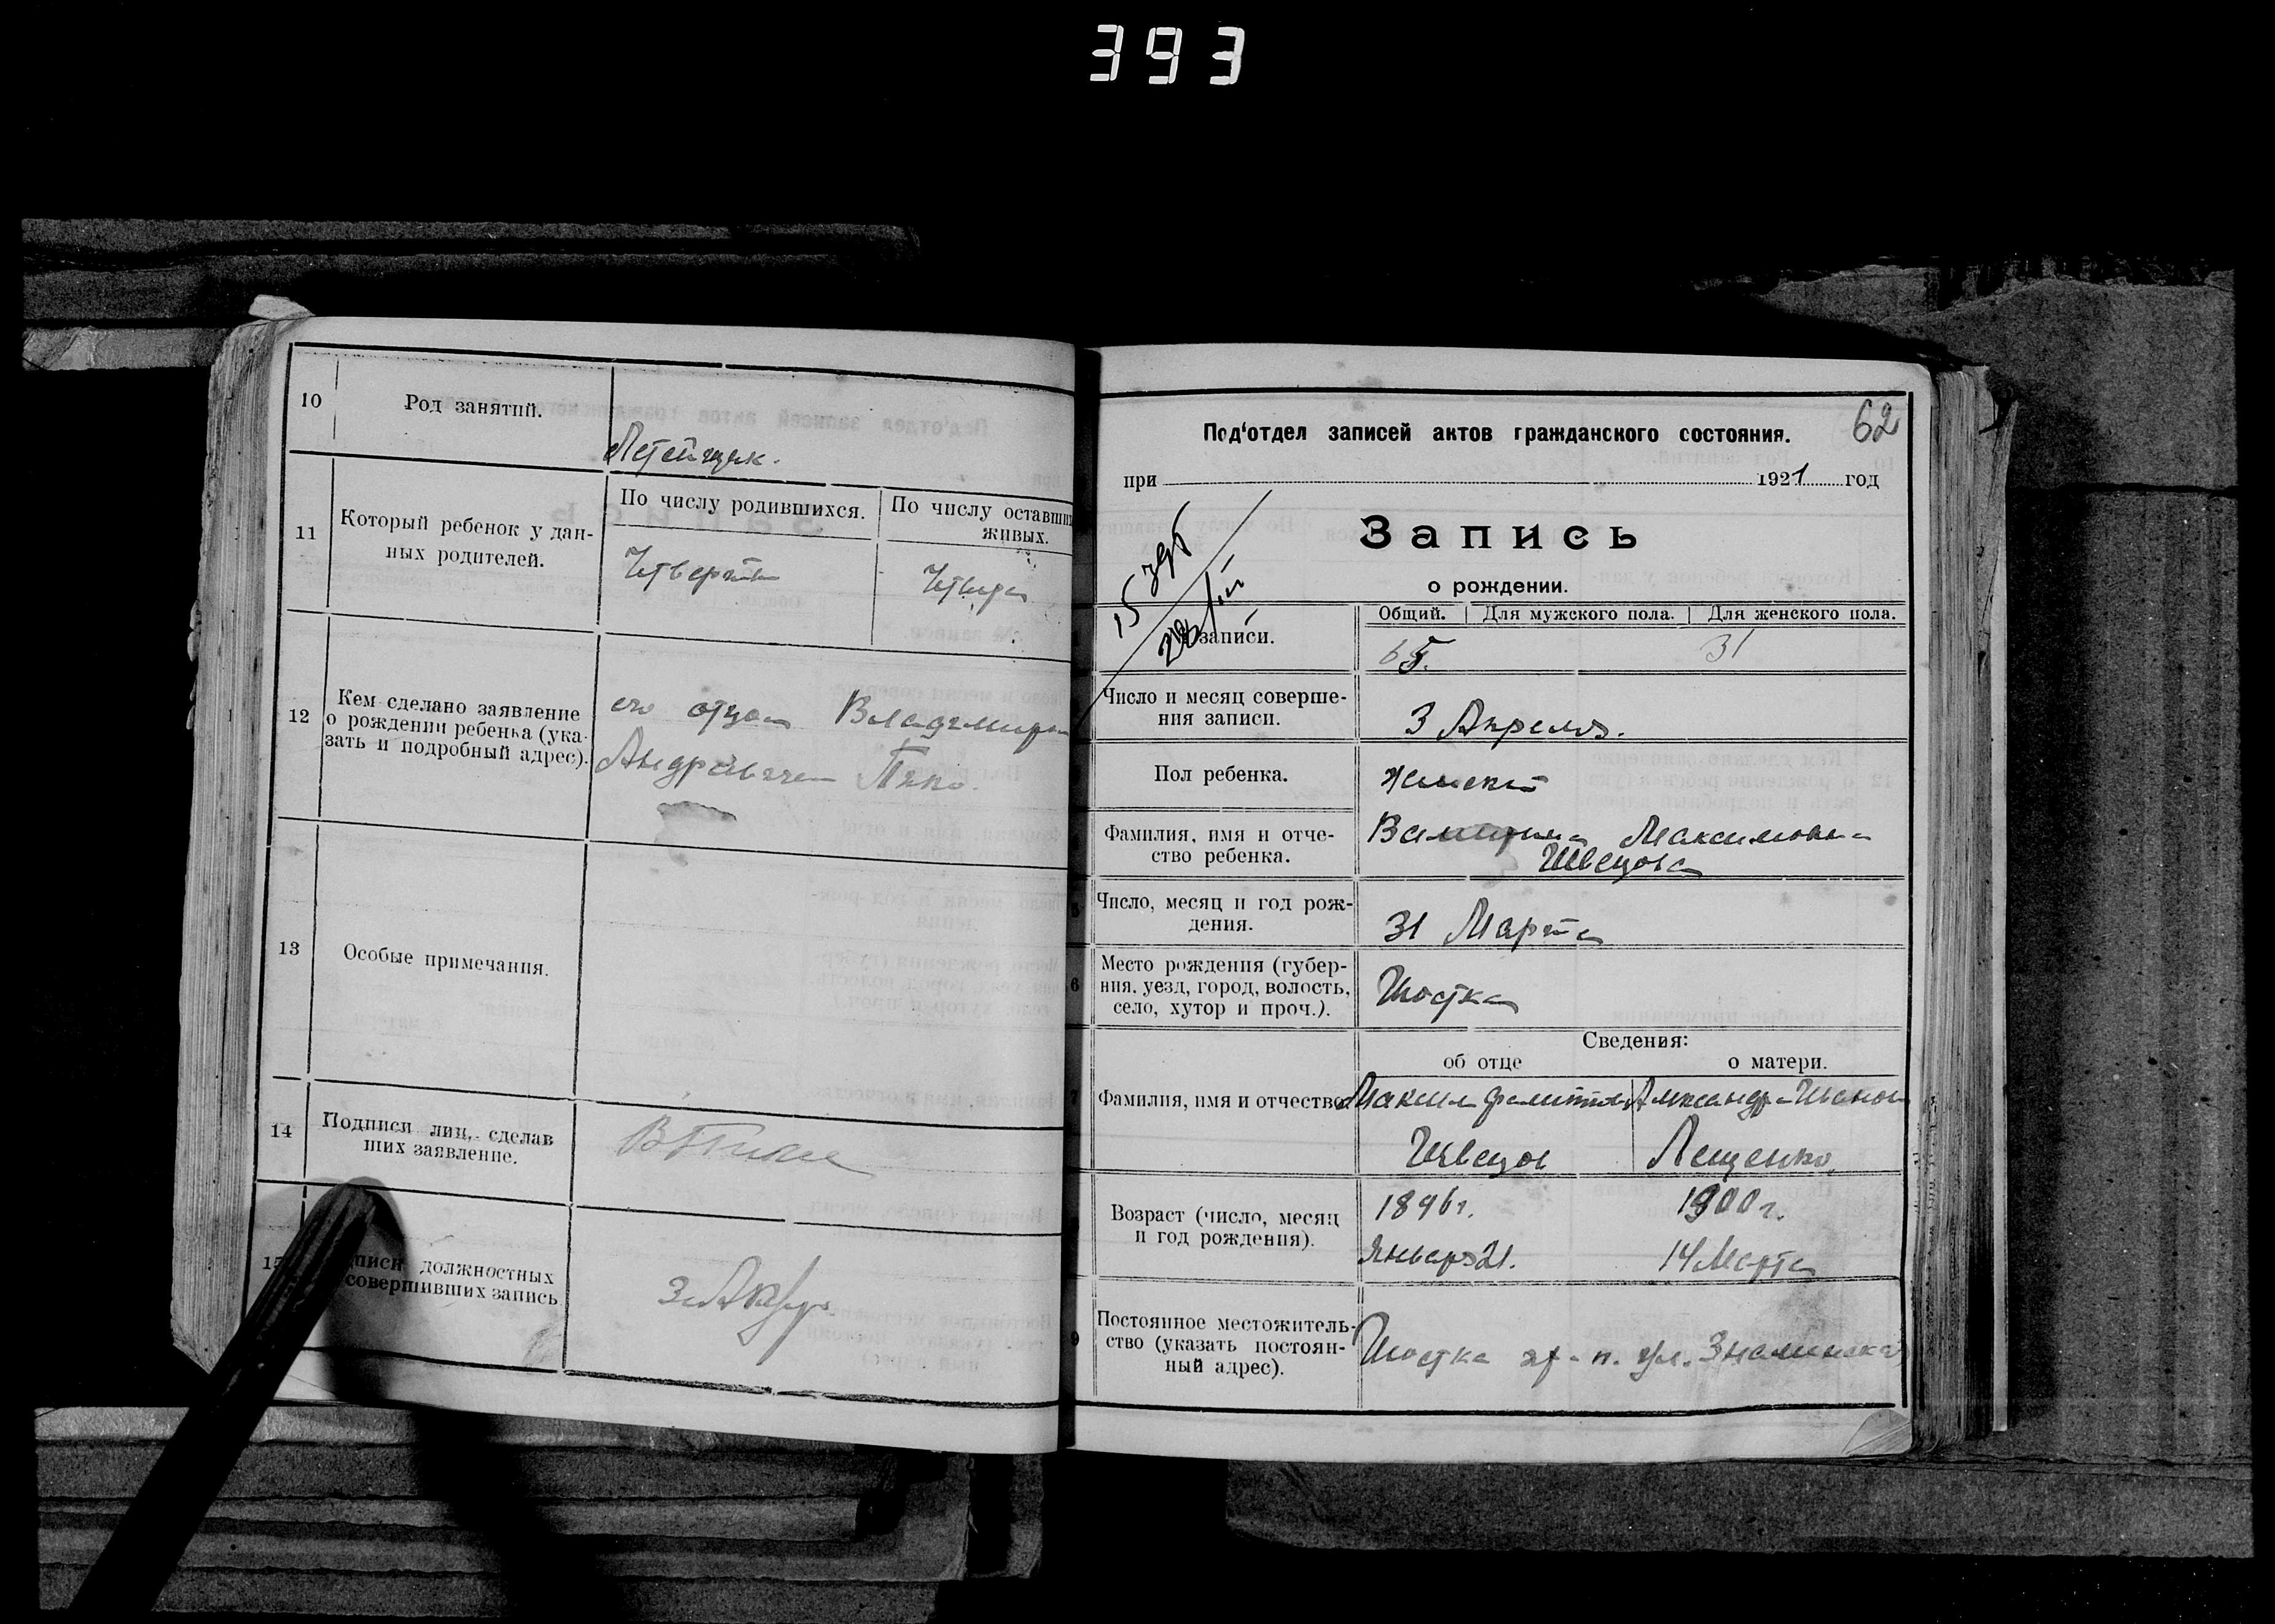 393
10 Род занятий.
Летейщик.
11 Который ребенок у дан-
ных родителей.
По числу родившихся.
По числу оставших
живых.
Четвертый
12 Кем сделано заявление
о рождении ребенка (ука-
зать и подробный адрес).
его отцом Владимиром
13 Особые примечания.
14 Подписи лиц, сделав
ших заявление.
должностных
совершивших запись
62
Под'отдел записей актов гражданского состояния.
при 1921 год
Запись
о рождении.
записи.
Общий. Для мужского пола. Для женского пола.
65. 31
Число и месяц соверше-
ния записи.
3 Апреля.
Пол ребенка.
женский
Фамилия, имя и отче-
ство ребенка.
Валентина Максимовна
Швецова
5 Число, месяц и год рож-
дения.
31 Марта
6 Место рождения (губер-
ния, уезд, город, волость,
село, хутор и проч.).
Шостка
Сведения:
об отце о матери.
7 Фамилия, имя и отчество
Максим Александра Иванов
Швецов Лещенко
Возраст (число, месяц
и год рождения).
1896 г. 1900 г.
Января 21. 14 Марта
9 Постоянное местожитель-
ство (указать постоян-
ный адрес).
Шостка ул. Знаменская